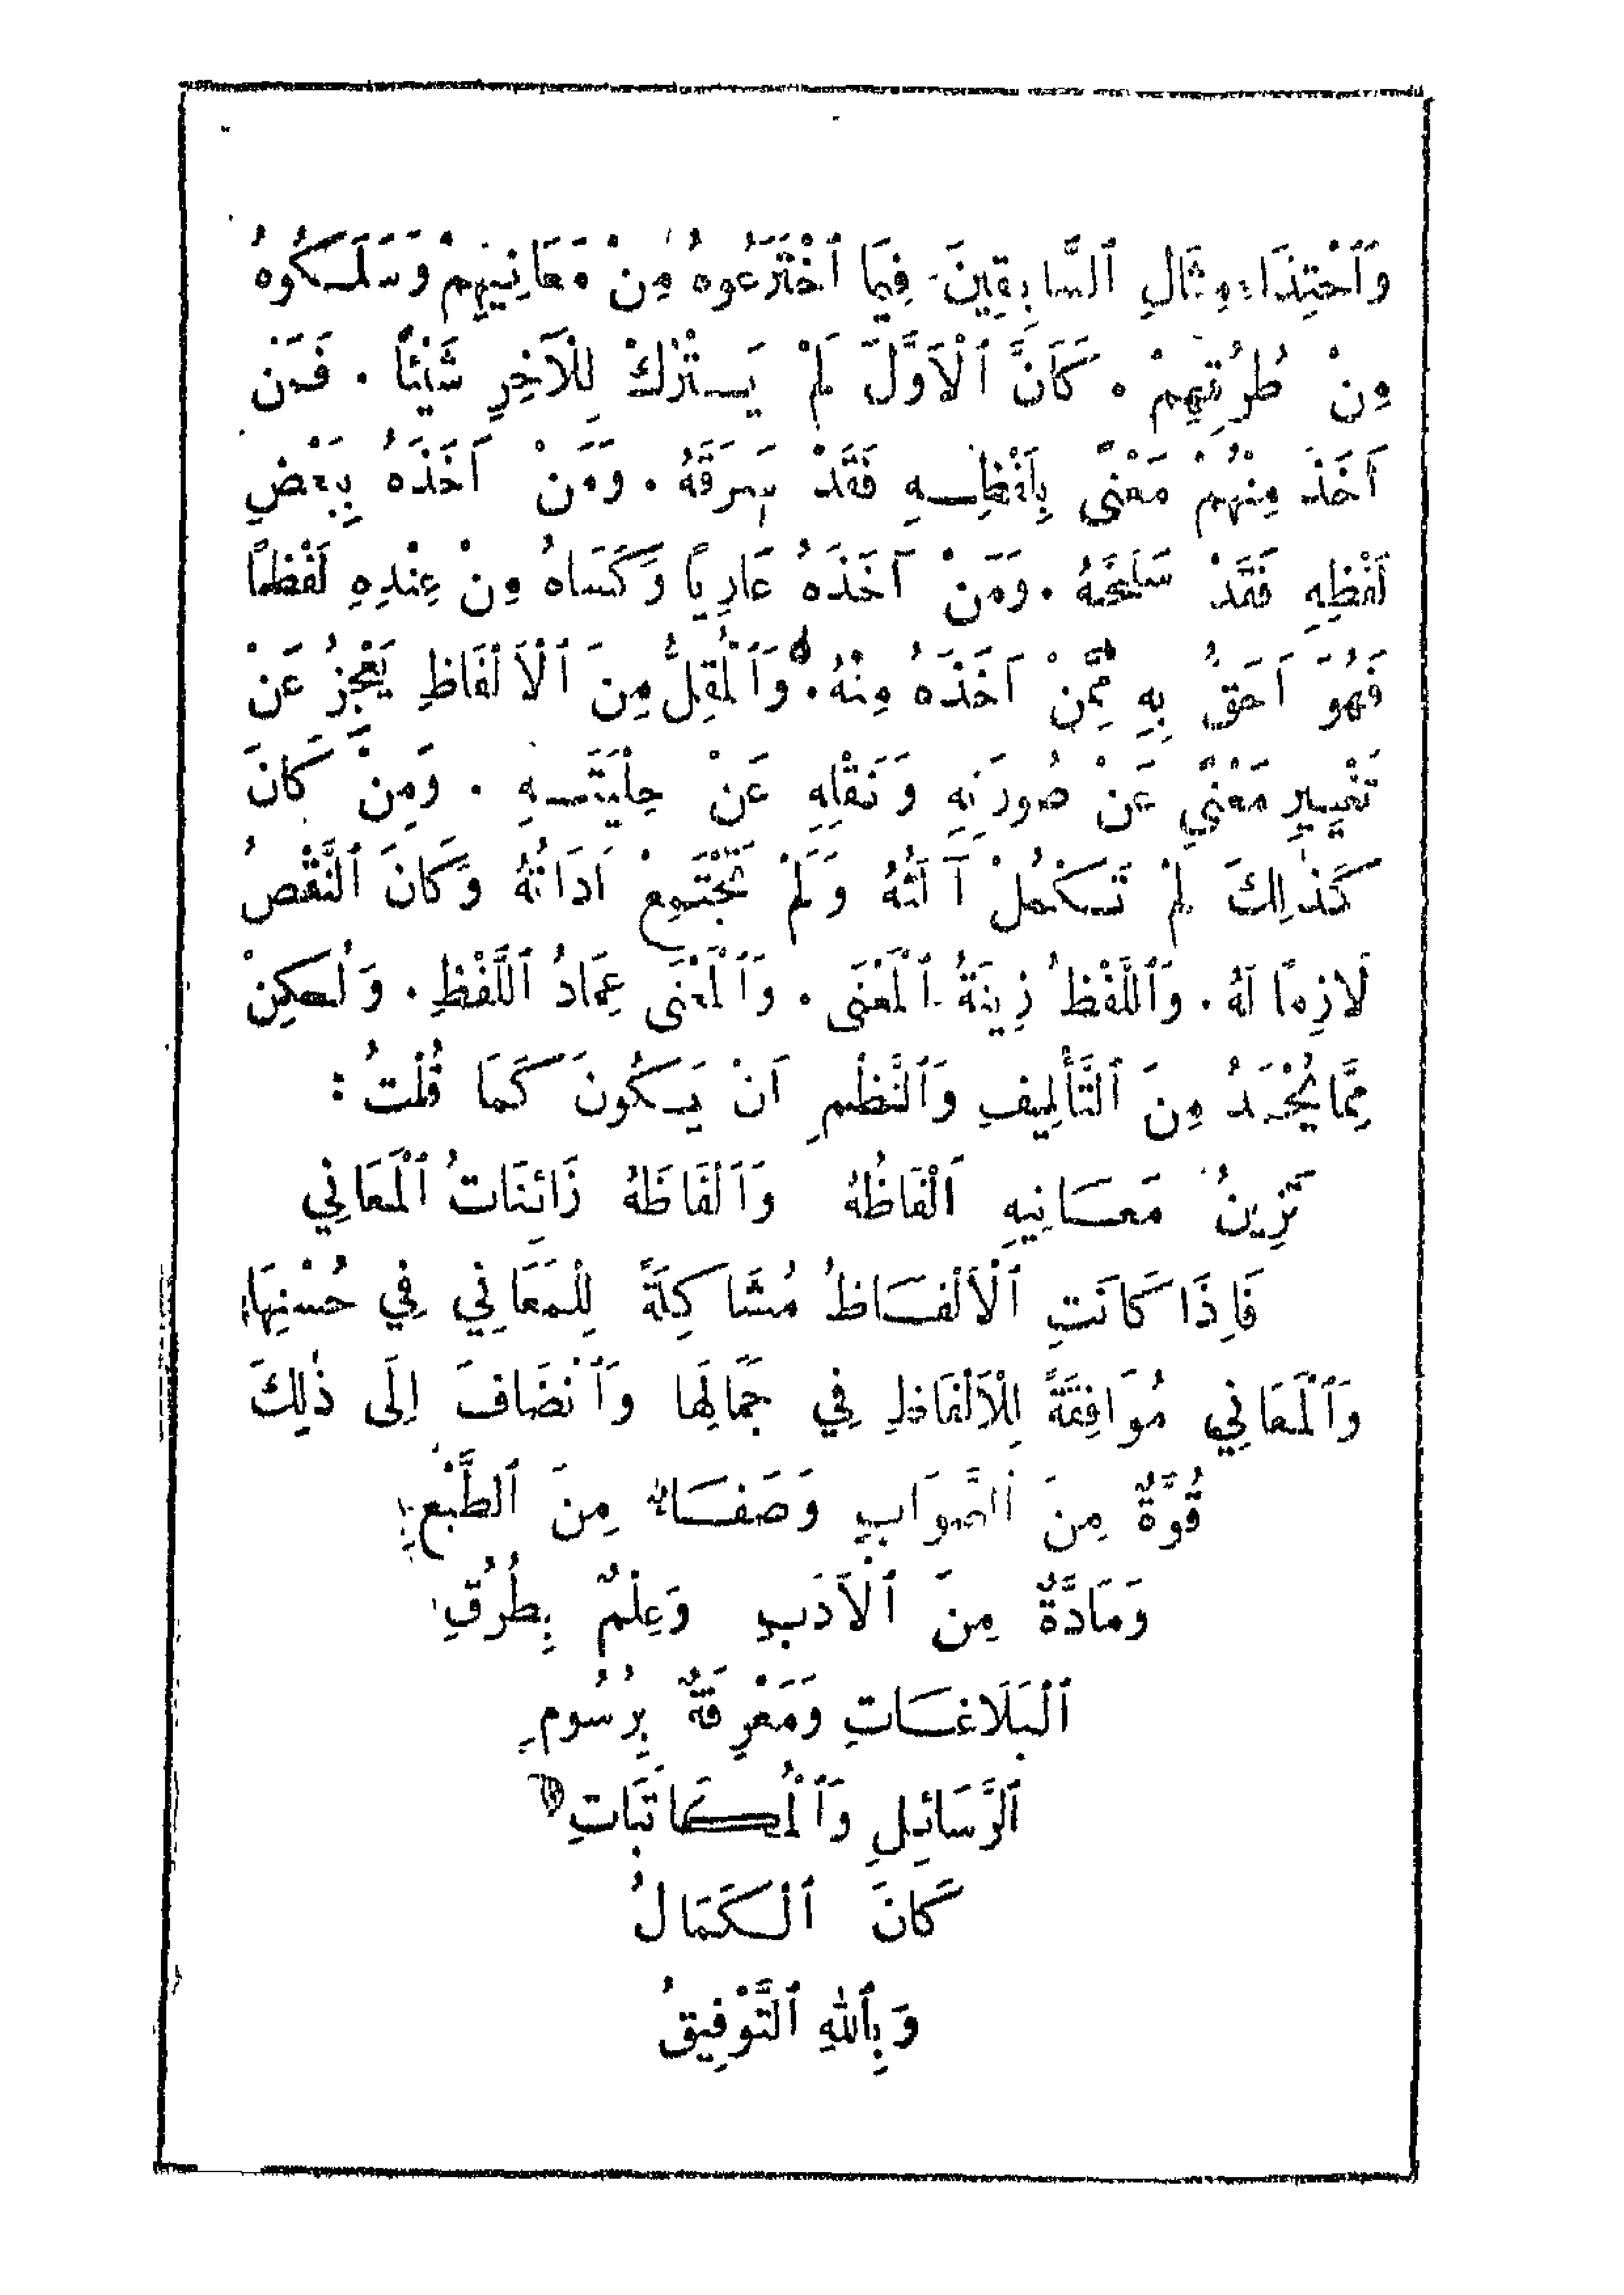 وَٱحْتِذَاءِ مِثَالِ ٱلسَّابِقِينَ فِيمَا ٱخْتَرَعُوهُ مِنْ مَعَانِيهِمْ وَسَلَكُوهُ
مِنْ طُرُقِهِمْ . كَاَنَّ ٱلْاَوَّلَ لَمْ يَتْرُكْ لِلْآخِرِ شَيْئًا . فَمَنْ
اَخَذَ مِنْهُمْ مَعْنًى بِلَفْظِهِ فَقَدْ سَرَقَهُ . وَمَنْ اَخَذَهُ بِبَعْضِ
لَفْظِهِ فَقَدْ سَلَخَهُ . وَمَنْ اَخَذَهُ عَارِيًا وَكَسَاهُ مِنْ عِنْدِهِ لَفْظًا
فَهُوَ اَحَقُّ بِهِ مِمَّنْ اَخَذَهُ مِنْهُ . وَٱلْمُقِلُّ مِنَ ٱلْاَلْفَاظِ يَعْجِزُ عَنْ
تَغْيِيرِ مَعْنًى عَنْ صُورَتِهِ وَنَقْلِهِ عَنْ حِلْيَتِهِ . وَمَنْ كَانَ
كَذٰلِكَ لَمْ تَكْمُلْ آلَتُهُ وَلَمْ تَجْتَمِعْ اَدَاتُهُ وَكَانَ ٱلنَّقْصُ
لَازِمًا لَهُ . وَٱللَّفْظُ زِينَةُ ٱلْمَعْنَى . وَٱلْمَعْنَى عِمَادُ ٱللَّفْظِ . وَلٰكِنْ
مِمَّا يُحْمَدُ مِنَ ٱلتَّأْلِيفِ وَٱلنَّظْمِ اَنْ يَكُونَ كَمَا قُلْتُ :
تَزِينُ مَعَانِيهِ اَلْفَاظُهُ وَاَلْفَاظَهُ زَائِنَاتُ ٱلْمَعَانِي
فَاِذَا كَانَتِ ٱلْاَلْفَاظُ مُشَاكِلَةً لِلْمَعَانِي فِي حُسْنِهَا
وَٱلْمَعَانِي مُوَافِقَةً لِلْاَلْفَاظِ فِي جَمَالِهَا وَٱنْضَافَ اِلَى ذٰلِكَ
قُوَّةٌ مِنَ ٱلصَّوَابِ وَصَفَاءٌ مِنَ ٱلطَّبْعِ
وَمَادَّةٌ مِنَ ٱلْاَدَبِ وَعِلْمٌ بِطُرُقِ
ٱلْبَلَاغَاتِ وَمَعْرِفَةٌ بِرُسُومِ
ٱلرَّسَائِلِ وَٱلْمُكَاتَبَاتِ
كَانَ ٱلْكَمَالُ
وَبِٱللّٰهِ ٱلتَّوْفِيقُ